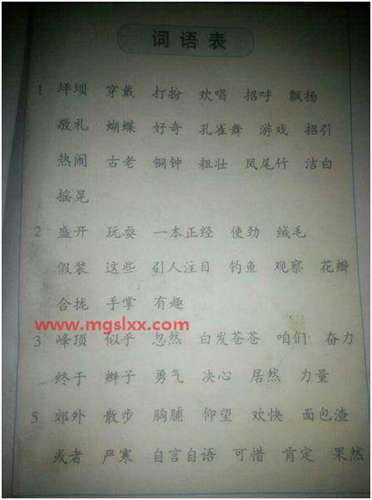 词语表
1 坪坝 穿戴 打扮 欢唱 招呼 飘扬
敬礼 蝴蝶 好奇 孔雀舞 游戏 招引
热闹 古老 铜钟 粗壮 凤尾竹 洁白
摇晃
2 盛开 玩耍 一本正经 使劲 绒毛
假装 这些 引人注目 钓鱼 观察 花瓣
合拢 手掌 有趣
www.mgslxx.com
3 峰顶 似乎 忽然 白发苍苍 咱们 奋力
终于 辫子 勇气 决心 居然 力量
5 郊外 散步 胸脯 仰望 欢快 面包渣
或者 严寒 自言自语 可惜 肯定 果然